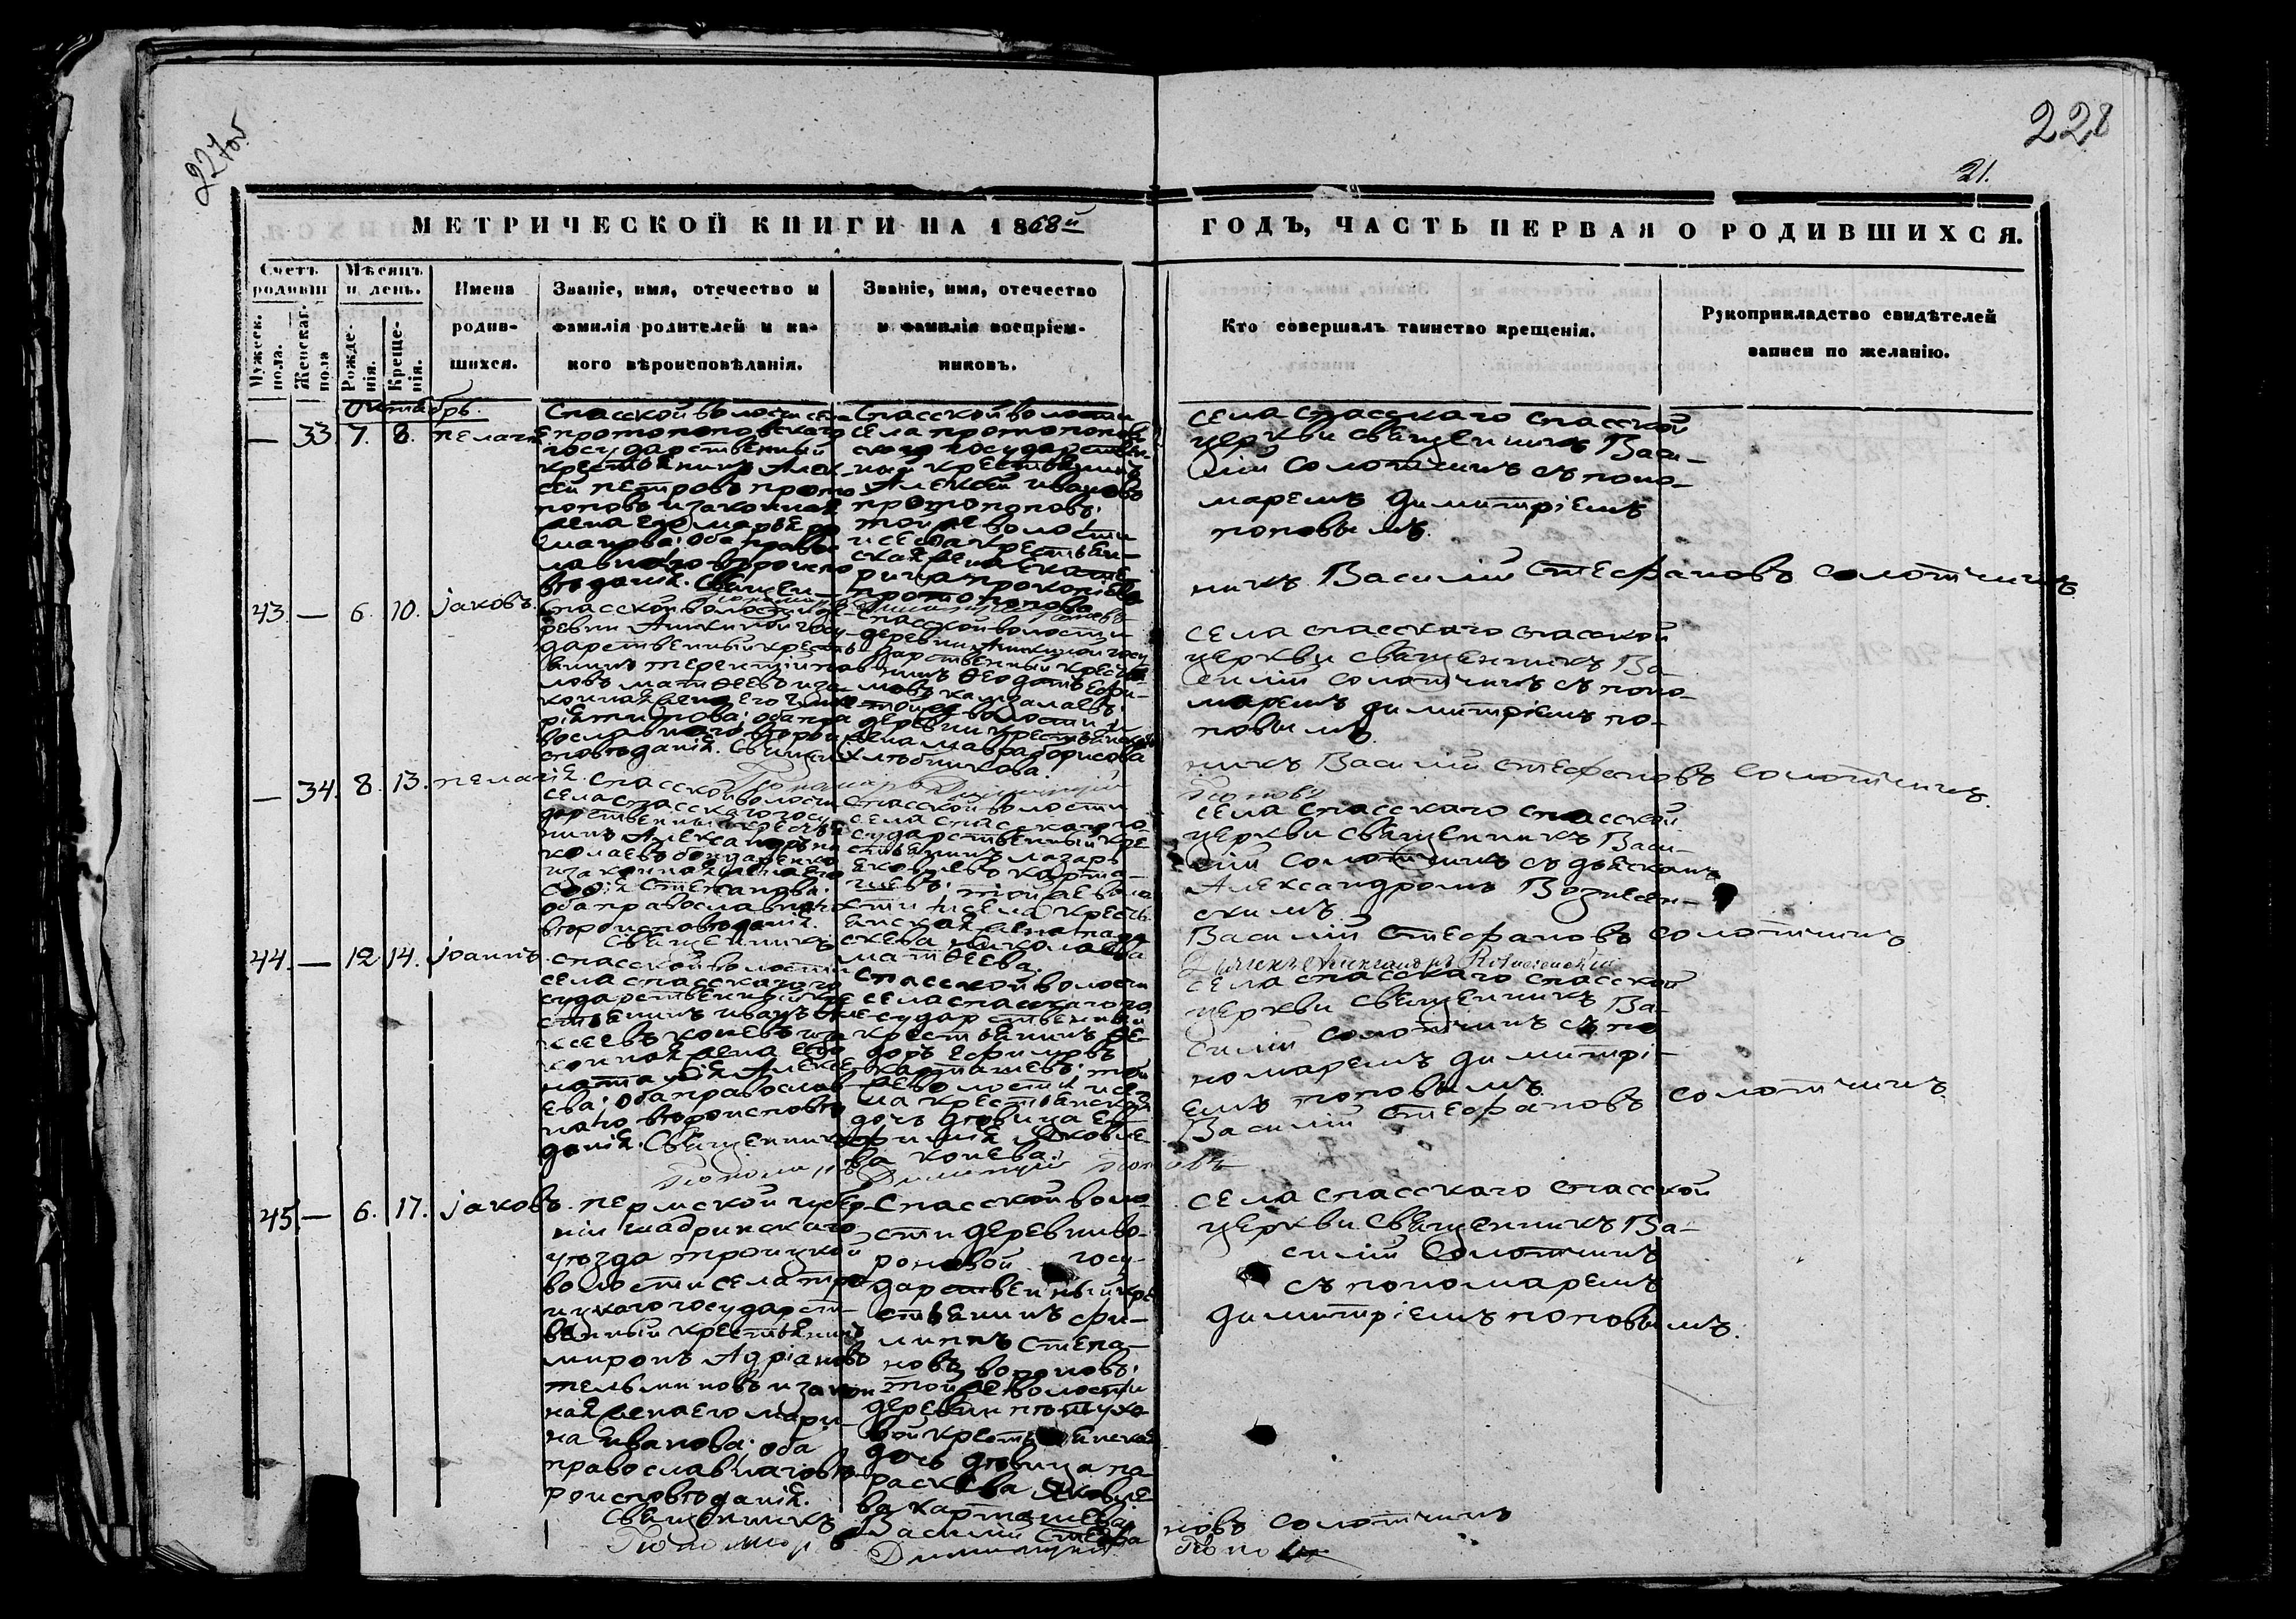 227об
228
21.
МЕТРИЧЕСКОЙ КНИГИ НА 1868й ГОДЪ, ЧАСТЬ ПЕРВАЯ О РОДИВШИХСЯ.
Счетъ родивш
Мужеск. пола.
Женскаг. пола
Мѣсяцъ и день.
Рожде-
нія.
Креще-
нія.
Имена
родив-
шихся.
Званіе, имя, отечество и
фамилія родителей и ка-
кого вѣроисповѣданія.
Званіе, имя, отечество
и фамилія воспріем-
никовъ.
Кто совершалъ таинство крещенія.
Рукоприкладство свидѣтелей
записи по желанію.
Октябрь.
— 33. 7. 8. пелагіѣ
Спасской волости села
протопоповскаго
государственный
крестьянинъ Алек-
сѣй петровъ прото-
поповъ и законная
жена его марья
оба право-
славнаго вѣроиспо-
вѣданія. Священ-
Спасской волости
села протопопов
скаго государствен-
ный крестьянинъ
Алексѣй ивановъ
протопоповъ;
той же волости
и села крестьян-
ская жена Екате-
рина прокопьева
протопопова.
села спасскаго спасской
церкви священникъ Васи-
лій Солотчинъ съ поно-
маремъ димитріемъ
поповымъ.
никъ Василій Стефановъ Солотчинъ
Пономарь Димитрій Поповъ
43. — 6. 10. јаковъ.
Спасской волости де-
ревни Аникиной госу-
дарственный кресть
янинъ терентій пав
ловъ матвѣевъ и за-
конная жена его
титова; оба пра
вославнаго вѣрои
сповѣданія. Священ
Спасской волости
деревни Аникиной госу
дарственный кресть
нинъ Ѳеодотъ Ефи-
мовъ
той же волости и
деревни крестьянская
жена мавра борисова
хлѣбникова.
села спасскаго спасской
церкви священникъ Ва-
силій Солотчинъ съ поно-
маремъ димитріемъ по-
повымъ
никъ Василій Стефановъ Солотчинъ.
Пономарь Димитрій
Поповъ
— 34. 8. 13. пелагіѣ.
Спасской волости
села спасскаго госу
дарственный кресть
нинъ Александръ ни
колаевъ бондаренко
и законная жена его
софія Степанова;
оба православнаго
вѣроисповѣданія.
Священникъ
Спасской волости
села спасскаго го-
сударственный кре-
стьянинъ лазарь
яковлевъ карта-
шевъ; той же воло
сти и села кресть
янская жена пара
скева николаева
матвѣева.
села спасскаго спасской
церкви священникъ Васи-
лій Солотчинъ съ дьякомъ
Александромъ Вознесен-
скимъ.
Василій Стефановъ Солотчинъ
Дьячекъ Александръ Вознесенскій
44. — 12 14. јоаннъ.
Спасской волости
села спасскаго го
сударственный кре
стьянинъ иванъ Але
ксеевъ коневъ и за
конная жена его
наталія Алексе
ева; оба православ
наго вѣроисповѣ
данія. Священникъ
Спасской волости
села спасскаго го
сударственный
крестьянинъ Ѳе-
доръ Ефимовъ
карташевъ; той
же волости и се-
ла крестьянская
дочь дѣвица Ев
фимія Яковле-
ва конева.
села спасскаго спасской
церкви священникъ Ва-
силій Солотчинъ съ по
номаремъ димитрі-
емъ поповымъ.
Василій Стефановъ Солотчинъ.
Пономарь Димитрій Поповъ
45. — 6. 17. јаковъ.
пермской губер-
ніи шадринскаго
уѣзда троицкой
волости села тро
ицкаго государст-
венный крестьянинъ
миронъ Адріановъ
тельминовъ и закон
ная жена его мари-
на иванова; оба
православнаго вѣ-
роисповѣданія.
Священникъ
Пономарь
Спасской воло-
сти деревни во-
роновой госу-
дарственный кре
стьянинъ фи-
липпъ Степа-
новъ вороновъ;
той же волости
деревни пѣтухо-
вой крестьянская
дочь дѣвица па-
раскева Яковле
ва карташева.
Василій Стефа
Димитрій
села спасскаго спасской
церкви священникъ Ва-
силій Солотчинъ
съ пономаремъ
димитріемъ поповымъ.
новъ Солотчинъ
Поповъ